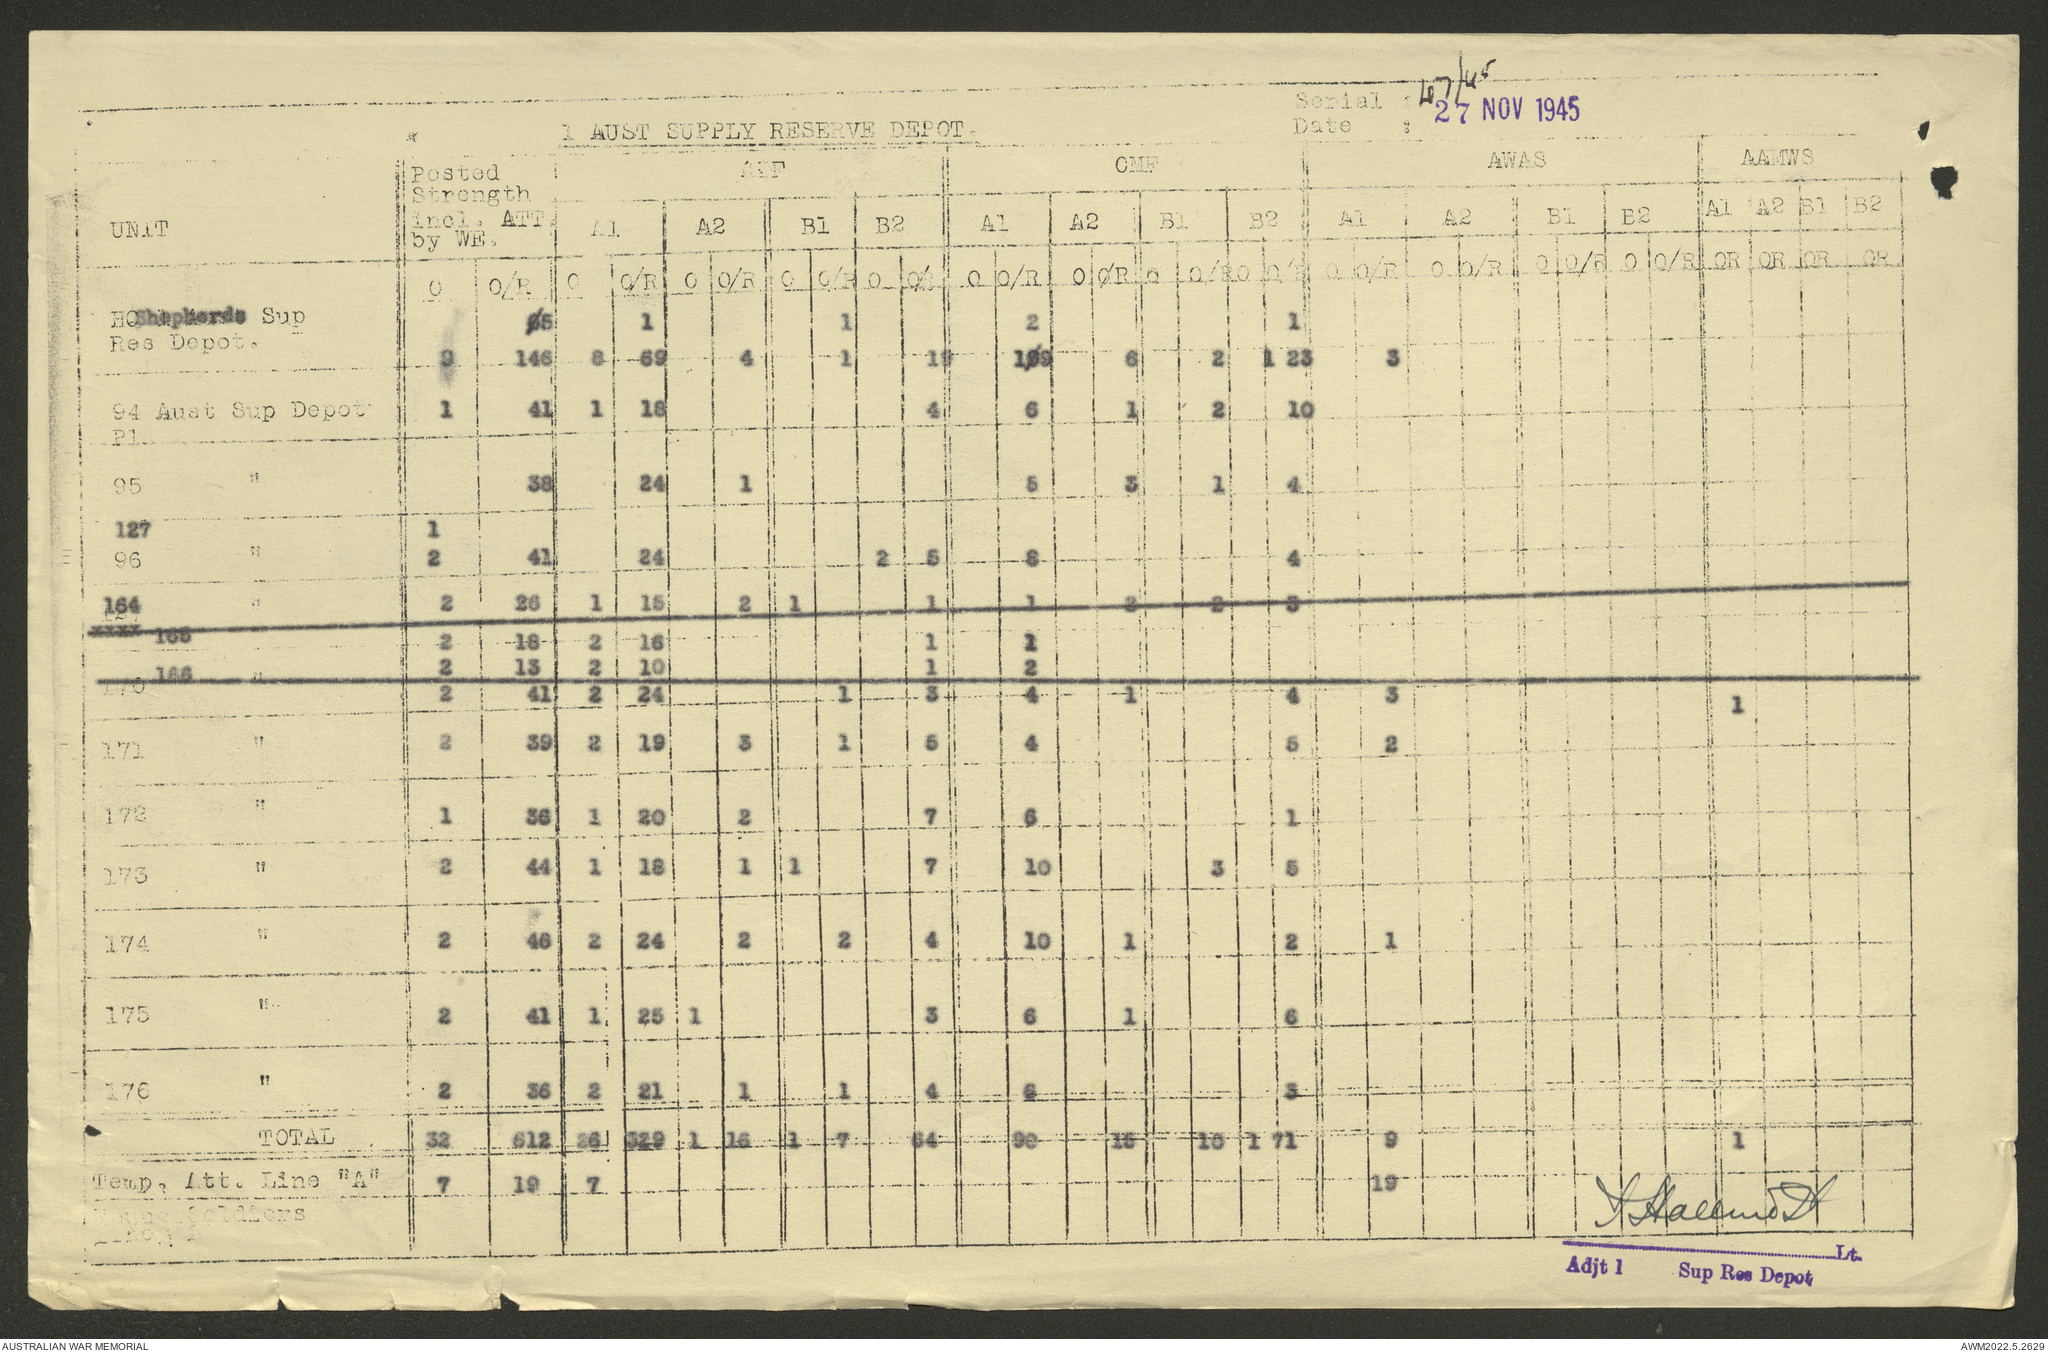 Serial : 47/45
Date : 27 NOV 1945
1 AUST SUPPLY RESERVE DEPOT.
UNIT Posted Strength incl. ATT. by WE. AIF CMF AWAS AAMWS
A1 A2 B1 B2 A1 A2 B1 B2 A1 A2 B1 B2 A1 A2 B1 B2
O O/R O O/R O O/R O O/R O O/R O O/R O O/R O O/R O O/R O O/R O O/R O O/R O O/R OR OR OR OR
HQ Shepherds Sup 5 1 1 2 1
Res Depot. 9 146 8 69 4 1 19 19 6 2 1 23 3
94 Aust Sup Depot 1 41 1 18 4 6 1 2 10
Pl
95 " 38 24 1 5 3 1 4
127 1
96 " 2 41 24 2 5 8 4
164 " 2 26 1 15 2 1 1 1 2 2 3
165 2 18 2 16 1 1
166 2 13 2 10 1 2
170 " 2 41 2 24 1 3 4 1 4 3 1
171 " 2 39 2 19 3 1 5 4 5 2
172 " 1 36 1 20 2 7 6 1
173 " 2 44 1 18 1 1 7 10 3 5
174 " 2 46 2 24 2 2 4 10 1 2 1
175 " 2 41 1 25 1 3 6 1 6
176 " 2 36 2 21 1 1 4 6 3
TOTAL 32 612 26 329 1 16 1 7 64 90 10 1 71 9 1
Temp. Att. Line "A" 7 19 7 19
Soldiers
Lt.
Adjt 1 Sup Res Depot
AUSTRALIAN WAR MEMORIAL
AWM2022.5.2629